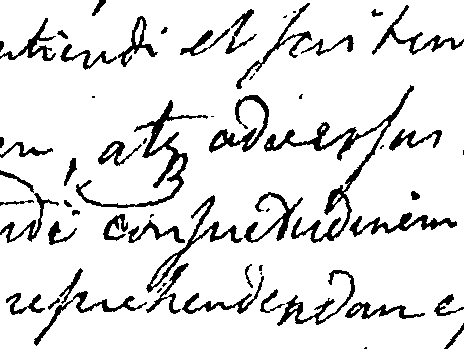 ntiendi et fori ten
en, atq adversus
ndi consuetudinem
reprehendendam es